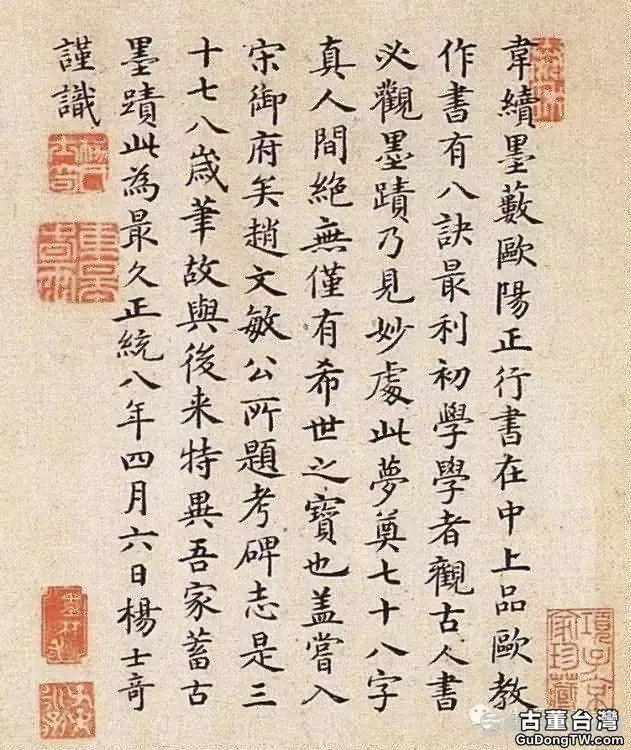 韋續墨藪歐陽正行書在中上品歐教
作書有八訣最利初學學者觀古人書
必觀墨蹟乃見妙處此夢奠七十八字
真人間絶無僅有希世之寶也盖嘗入
宋御府矣趙文敏公所題考碑志是三
十七八歲筆故與後来特異吾家蓄古
墨蹟此為最久正統八年四月六日楊士奇
謹識
項子京
家珍藏
古董台灣
GuDongTW.com